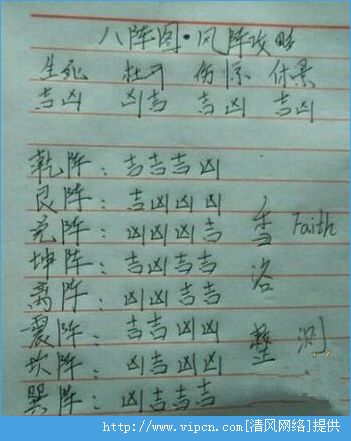 八阵图·风阵攻略
生死 杜开 伤惊 休景
吉凶 凶吉 吉凶 吉凶
乾阵：吉吉吉凶
艮阵：吉凶凶凶
兑阵：凶凶凶吉
坤阵：吉凶吉吉
离阵：凶凶吉吉
震阵：吉吉凶凶
坎阵：凶吉凶凶
巽阵：凶吉吉吉
Faith
洛
整
http://www.vipcn.com[清风网络]提供